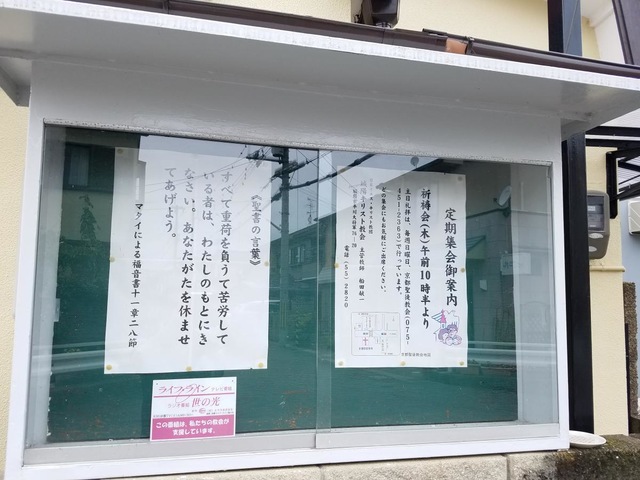 定期集会御案内
祈祷会(木)午前10時半より
主日礼拝は、毎週日曜日、京都聖徒教会(075-
451-2363)で行っています。
どの集会にもお気軽にご出席ください。
キリスト教会
電話(55)2820
《聖書の言葉》
すべて重荷を負うて苦労して
いる者は、わたしのもとにき
なさい。あなたがたを休ませ
てあげよう。
マタイによる福音書十一章二八節
ライフ・ライン テレビ番組
ラジオ番組 世の光
この番組は、私たちの教会が
支援しています。